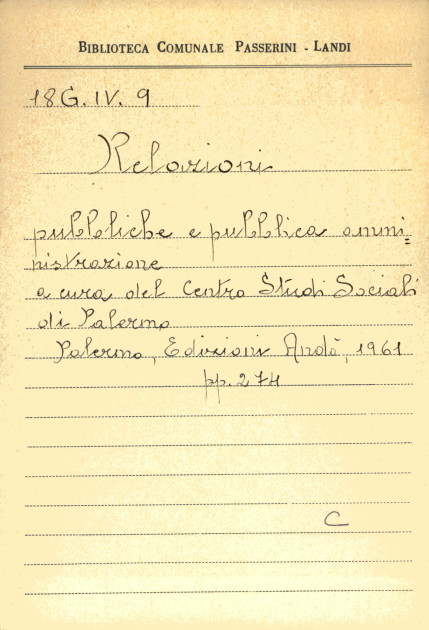 BIBLIOTECA COMUNALE PASSERINI - LANDI
18G. IV. 9
Relazioni
pubbliche e pubblica ammi=
nistrazione
a cura del Centro Studi Sociali
di Palermo
Palermo, Edizioni Andò, 1961
pp. 274
C